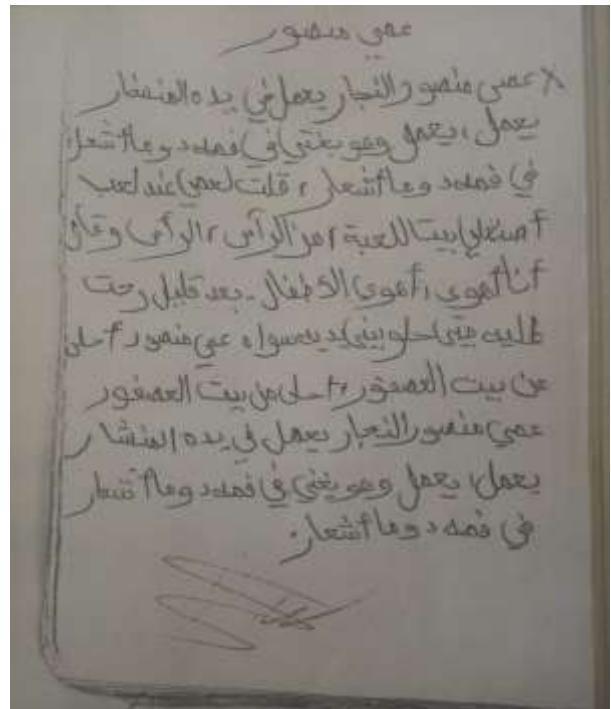 عمي منصور
عمي منصور النجار يعمل في يده المنشار
يعمل، يعمل وهو يغني في فمه دوما أشعار
في فمه دوما أشعار، قلت لعمي عندلعب
أصنعلي بيتا للعبة، هز الرأس، الرأس وقال
أنا أهوى، أهوى الأطفال. بعد قليل رحت
إليه شيئ حلو بين يديه سواه عمي منصور أحلى
من بيت العصفور، أحلى من بيت العصفور
عمي منصور النجار يعمل في يده المنشار
يعمل، يعمل وهو يغني في فمه دوما أشعار
في فمه دوما أشعار.